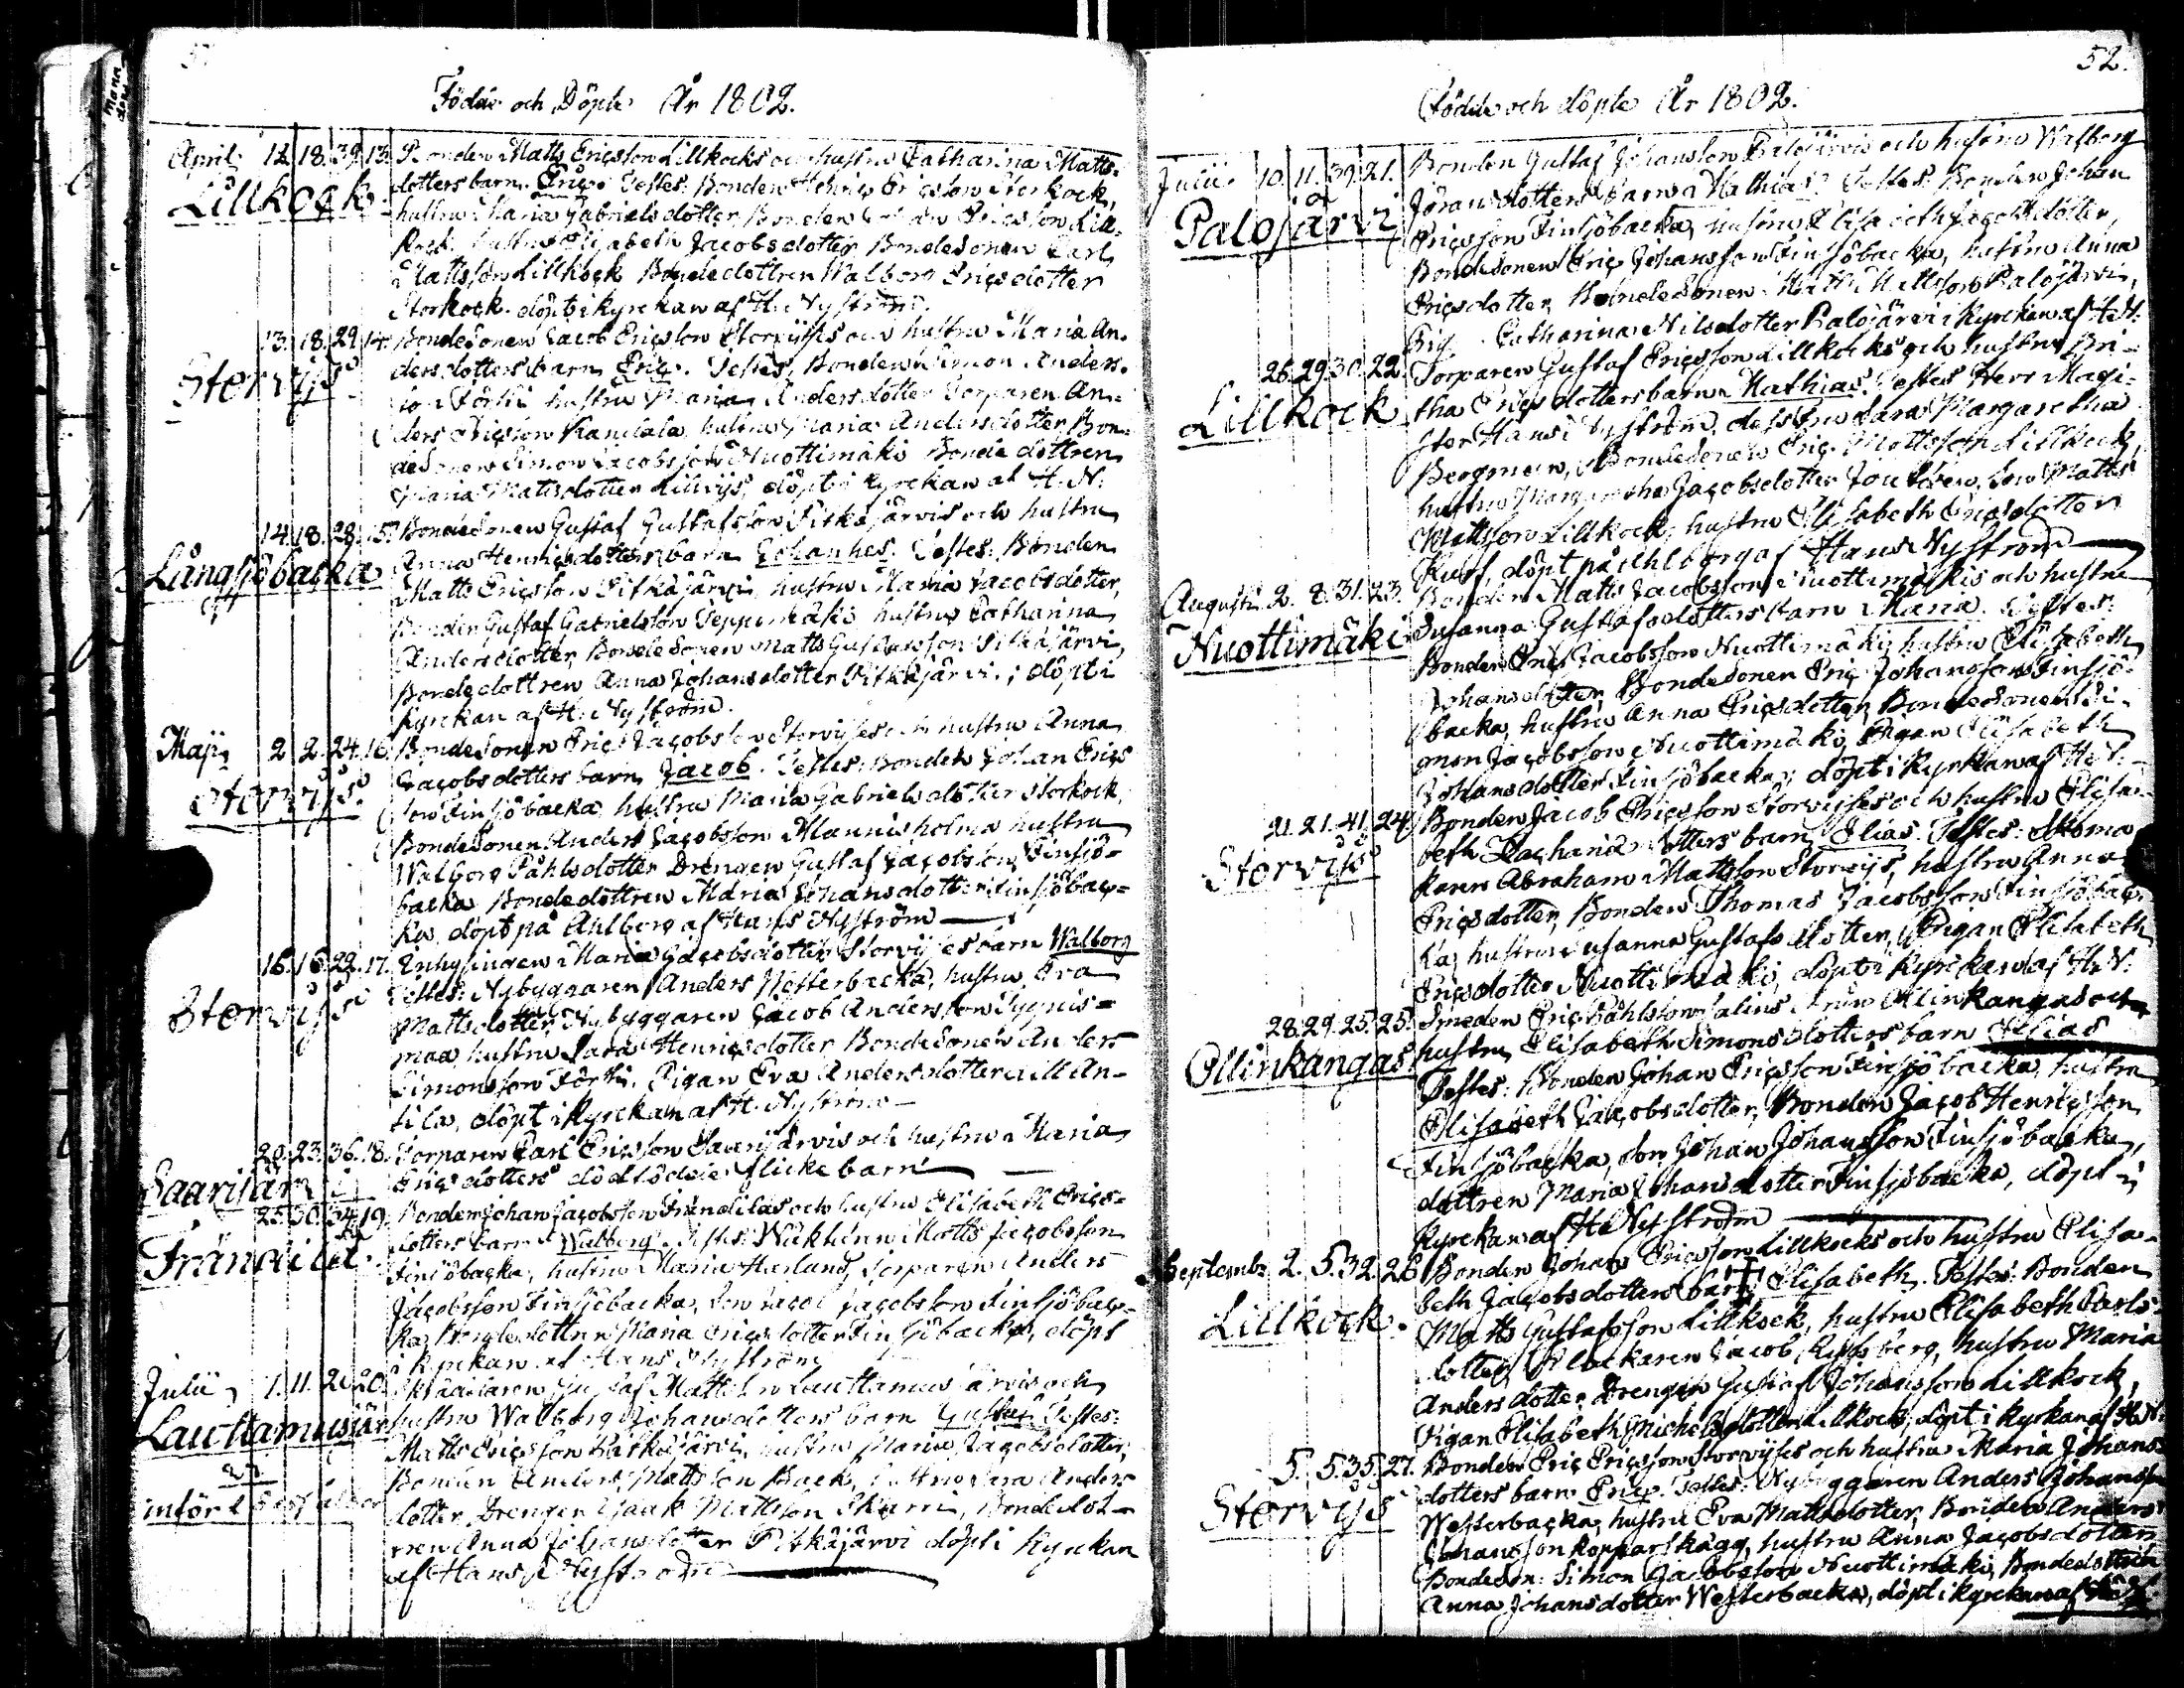 Födde och Döpte År 1802.
April 12. 18. 39. 13. Bonden Matts Ericsson Lillkocks och hustru Catharina Matts-
Lillkock
dotters barn Eric. Testes: Bonden Henric Ericsson Storkock,
hustru Maria Gabrielsdotter, Bonden Ericsson Lill-
kock, hustru Elisabeth Jacobsdotter Bondesonen Carl
Mattsson Lillkock Bondedottren Walborg Ericsdotter
Storkock. döpt i kyrckan af H. Nyström.
13. 18. 29. 14. Bondesonen Jacob Ericsson Storvijses och hustru Maria An-
Storvijs
dersdotters barn Eric. Testes, Bonden Simon Anders-
son Förti hustru Maria Andersdotter Torparen An-
ders Ericsson Kandala hustru Maria Andersdotter, Bon-
desonen Simon Jacobsson Nuottimäki Bondedottren
Maria Mattsdotter Lillvijs, döpt i kyrckan af H. N.
14. 18. 28. 15. Bondesonen Gustaf Gustafsson Pitkäjärvis och hustru
Långsjöbacka
Anna Henricsdotters barn Johannes. Testes: Bonden
Matts Ericsson Pitkäjärvi, hustru Maria Jacobsdotter,
Bonden Gustaf Gabrielsson Seppimäki hustru Catharina
Andersdotter, Bondesonen Matts Gustafsson Pitkäjärvi,
Bondedottren Anna Johansdotter Pitkäjärvi, döpt i
kyrckan af H. Nyström.
Maji 2. 2. 24. 16. Bondesonen Eric Jacobsson Storvijses och hustru Anna
Storvijs
Jacobsdotters barn Jacob. Testes: Bonden Johan Erics-
son Finsjöbacka hustru Maria Gabrielsdotter Storkock,
Bondesonen Anders Jacobsson Mannisholma hustru
Walborg Påhlsdotter Drengen Gustaf Jacobsson Finsjö-
backa Bondedottren Maria Johansdotter Finsjöbac-
ka, döpt på Ahlberg af Hans Nyström
16. 16. 22. 17. Inhysingen Maria Jacobsdotter Storvijses barn Walborg
Storvijs
Testes: Nybyggaren Anders Westerbacka, hustru Eva
Mattsdotter, Nybyggaren Jacob Andersson
maa, hustru Sara Henricsdotter Bondesonen Anders
Simonsson Förti. Pigan Eva Andersdotter An-
tila, döpt i kyrckan af H. Nyström
20. 23. 36. 18. Torparen Carl Ericsson Saarijärvis och hustru Maria
Saarijärvi
Ericsdotters dödfödde flicke barn
25. 30. 34. 19. Bonden Johan Jacobsson Frändilas och hustru Elisabeth Erics-
Frändilet
dotters barn Walborg. Testes: Matts Jacobsson
Finsjöbacka, hustru Maria Harlund, Torparen Anders
Jacobsson Finsjöbacka, Son Jacob Jacobsson Finsjöbac-
ka, Maria Ericsdotter Finsjöbacka, döpt
i kyrckan af Hans Nyström
Julii 1. 11. 20. 20. Gustaf Mattsson Lauttamusjärvis och
Lauttamusjär
hustru Walborg Johansdotters barn Gustaf Testes:
Matts Ericsson Pitkäjärvi, hustru Maria Jacobsdotter,
Bonden Anders Mattsson Back, hustru Anders-
dotter, Drengen Isaak Mattsson Skurri, Bondedot-
tren Anna Johansdotter Pitkäjärvi döpt i kyrckan
af Hans Nyström
52.
Födde och döpte År 1802.
Julii 10. 11. 39. 21. Bonden Gustaf Johansson Palojärvis och hustru Walborg
Palojärvi
Jörans dotters barn Mathias. Testes: Bonden Johan
Ericsson Finsjöbacka, hustru Elisabeth Jacobsdotter,
Bondesonen Eric Johansson Finsjöbacka, hustru Anna
Ericsdotter, Bondesonen Mattsson Palojärvi,
Catharina Nilsdotter Palojärvi i kyrckan af H. N.
26. 29. 30. 22. Torparen Gustaf Ericsson Lillkocks och hustru Bri-
Lillkock
tha Ericsdotters barn Mathias. Testes Herr Magi-
ster Hans Nyström, dess fru Sara Margaretha
Bergman, Bondesonen Eric Mattsson Lillkock,
hustru Margaretha Jacobsdotter Matts
Mattsson Lillkock, hustru Elisabeth Ericsdotter
döpt på Ahlberg af Hans Nyström
Augusti 2. 8. 31. 23. Bonden Matts Jacobsson Nuottimäkis och hustru
Nuottimäki
Susanna Gustafsdotters barn Maria. Testes:
Bonden Eric Jacobsson Nuottimäki, hustru Elisabeth
Johansdotter, Bondesonen Eric Johansson Finsjö-
backa, hustru Anna Ericsdotter, Bondesonen Si-
mon Jacobsson Nuottimäki, Pigan Elisabeth
Johansdotter Finsjöbacka, döpt i kyrckan af H. N.
21. 21. 41. 24. Bonden Jacob Ericsson Storvijses och hustru Elisa-
Storvijs
beth Zacharia dotters barn Elias. Testes: Skoma-
karen Abraham Mattsson Storvijs, hustru Anna
Ericsdotter, Bonden Thomas Jacobsson Finsjöbac-
ka, hustru Susanna Gustafsdotter, Pigan Elisabeth
Ericsdotter Nuottimäki, döpt i kyrckan af H. N.
28. 29. 25. 25. Smeden Eric Påhlsson Salins från Ollinkangas och
Ollinkangas
hustru Elisabeth Simonsdotters barn Elias
Testes: Bonden Johan Ericsson Finsjöbacka, hustru
Elisabeth Jacobsdotter, Bonden Jacob Henricsson
Finsjöbacka, Son Johan Johansson Finsjöbacka,
dottren Maria Johansdotter Finsjöbacka, döpt i
kyrckan af H. Nyström
Septembr 2. 5. 32. 26. Bonden Johan Ericsson Lillkocks och hustru Elisa-
Lillkock.
beth Jacobsdotters barn Elisabeth. Testes: Bonden
Matts Gustafsson Lillkock, hustru Elisabeth Carls-
dotter, Klockaren Jacob hustru Maria
Andersdotter, Drengen Gustaf Johansson Lillkock,
Pigan Elisabeth Michelsdotter Lillkock, döpt i kyrkan af H. N.
5. 5. 35. 27. Bonden Eric Ericsson Storvijses och hustru Maria Johans-
Storvijs
dotters barn Eric. Testes: Nybyggaren Anders Johansson
Westerbacka, hustru Eva Mattsdotter, Bonden Anders
Johansson Kopparskägg, hustru Anna Jacobsdotter
Bondeson: Simon Jacobsson Nuottimäki, Bondedottren
Anna Johansdotter Westerbacka, döpt i kyrckan af